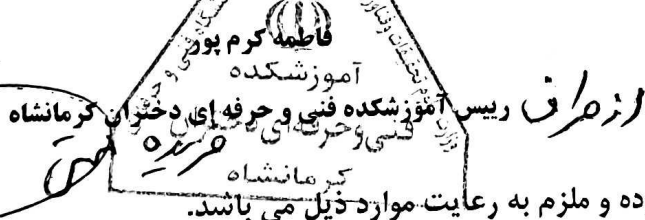 فاطمه کرم پور
آموزشکده
از طرف رییس آموزشکده فنی و حرفه ای دختران کرمانشاه
فنی و حرفه ای دختران
کرمانشاه
ده و ملزم به رعایت موارد ذیل می باشد.